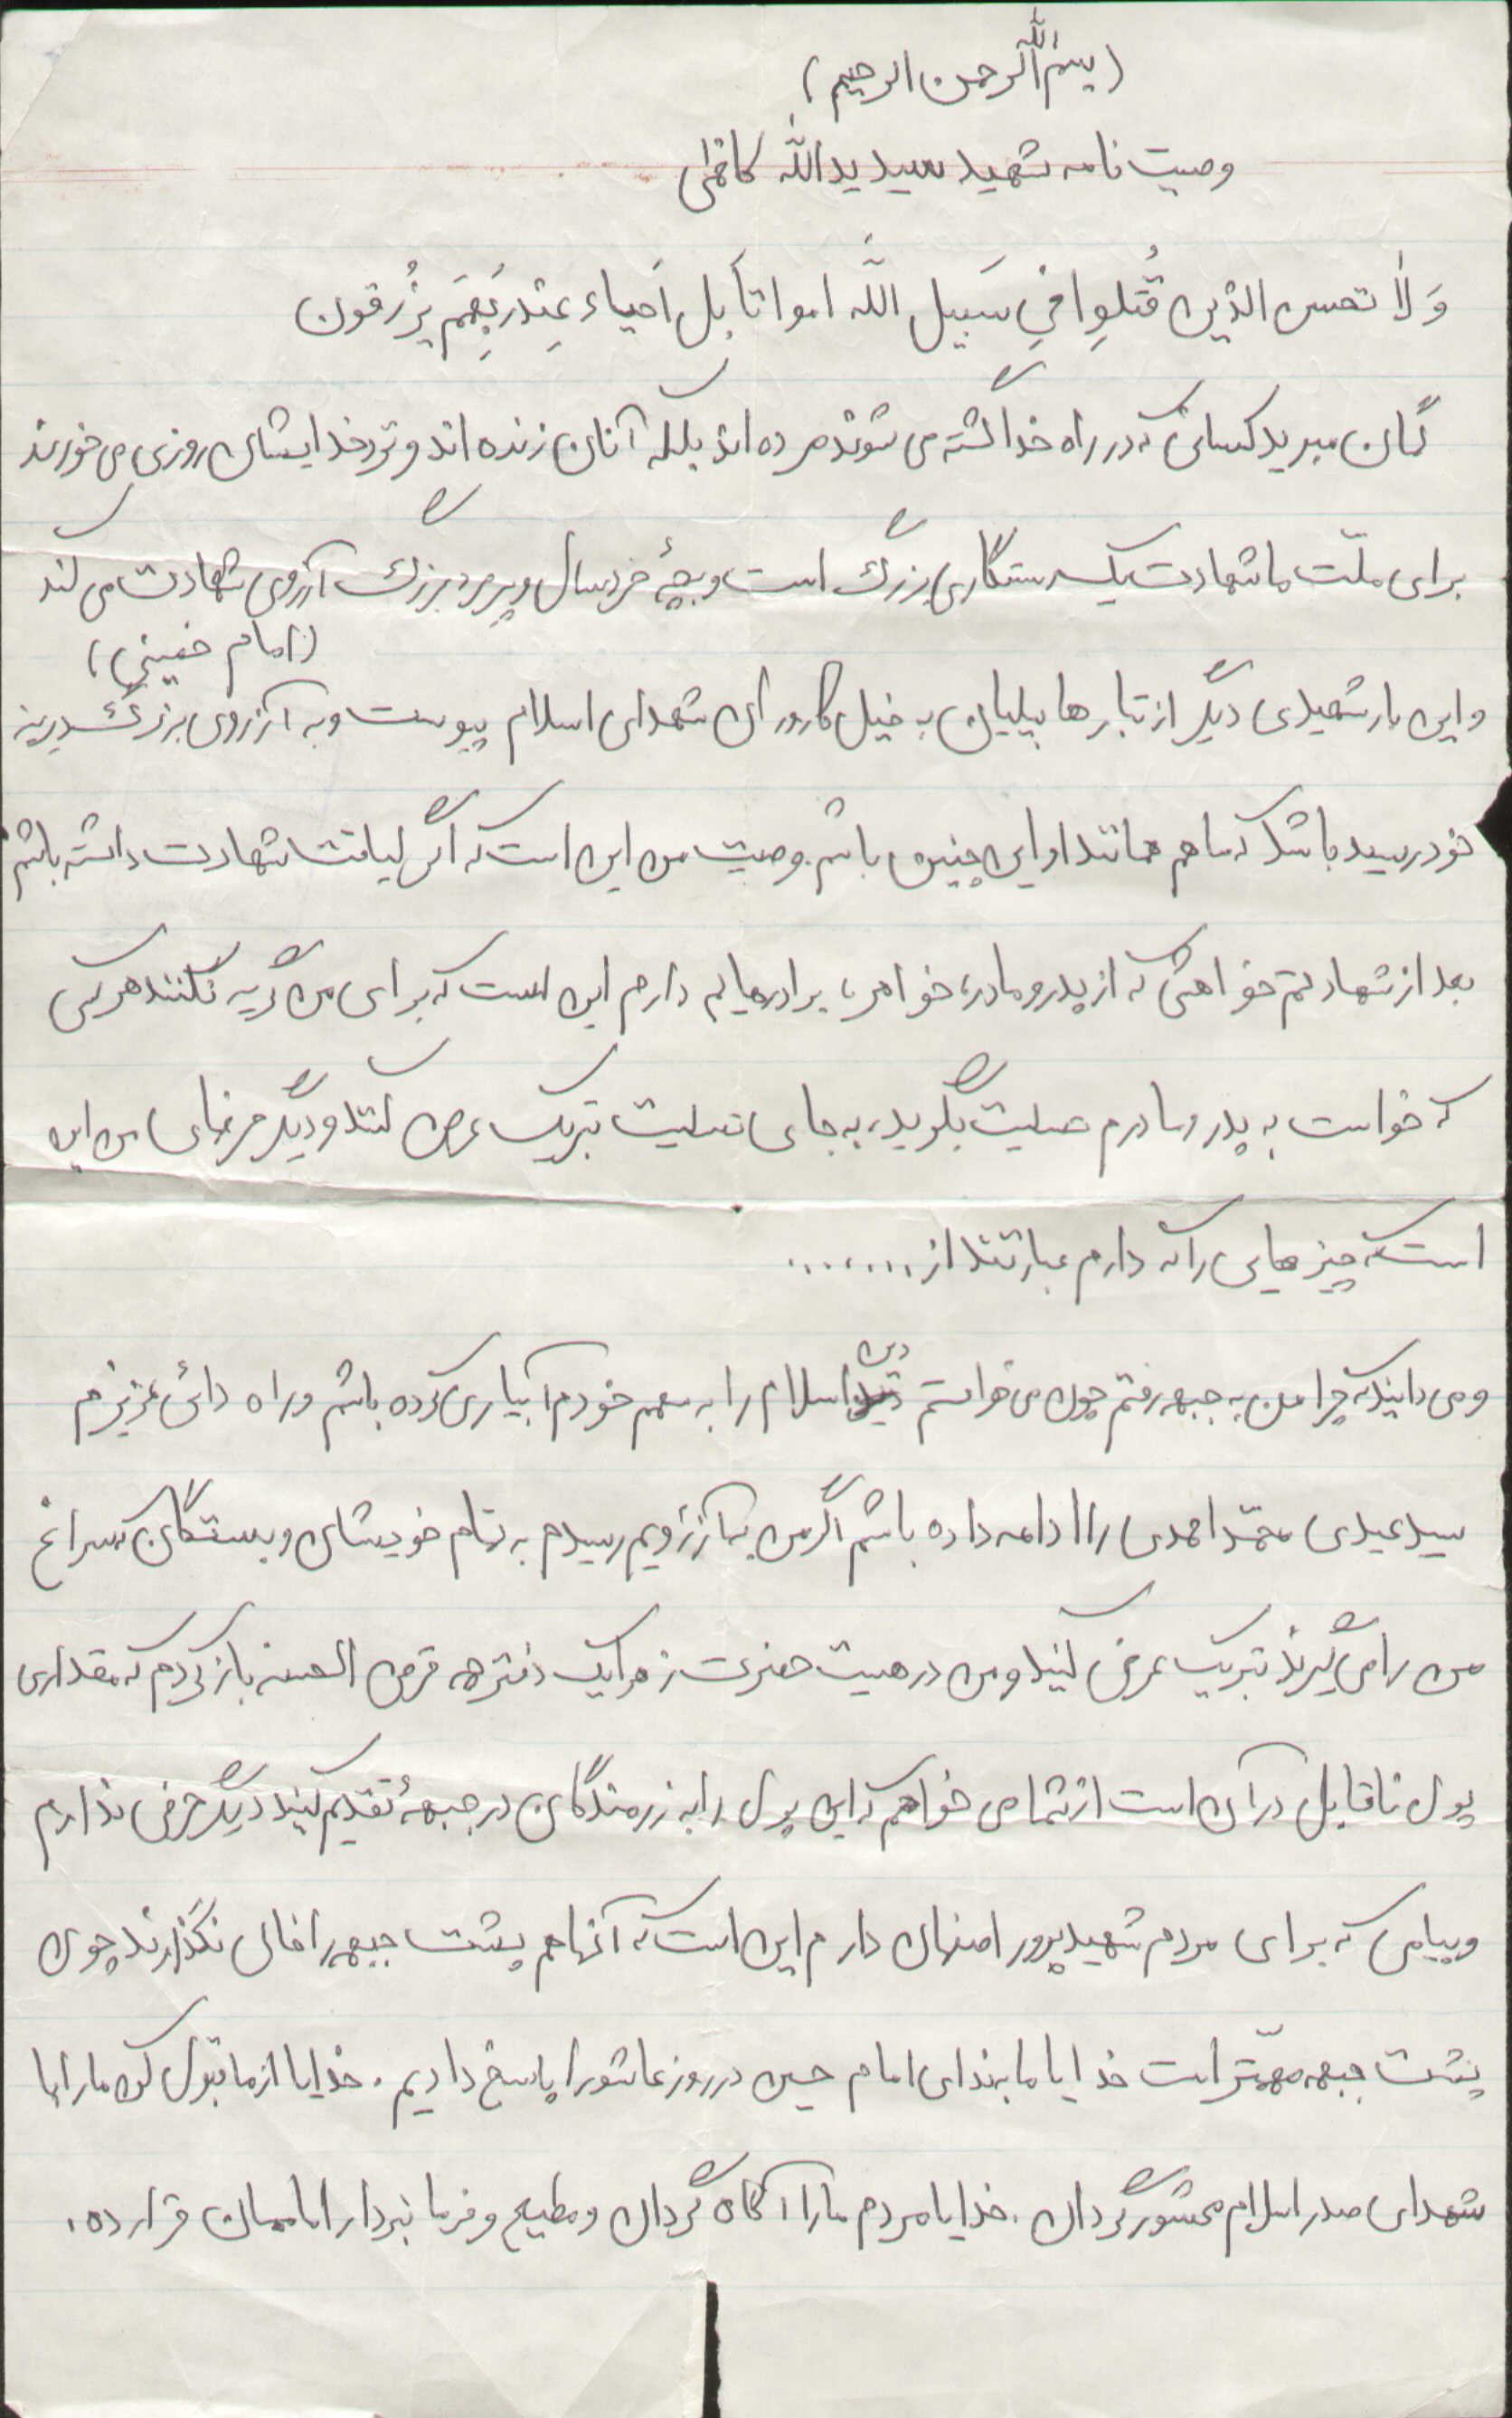 (بسم الله الرحمن الرحیم)
وصیت نامه شهید سید یدالله کاظمی
وَلاٰ تحسبن الذین قُتلوِا فیِ سَبیل اللَّه امواتاً بَل اَحیاء عِنْدَ رَبِّهِمَ یُرْزقون
گمان مبرید کسانی که در راه خدا کشته می شوند مرده اند بلکه آنان زنده اند و نزد خدایشان روزی می خورند
برای ملّت ما شهادت یک رستگاری بزرگ است و بچۀ خردسال و پیرمرد بزرگ آرزوی شهادت می کند
(امام خمینی)
و این بار شهیدی دیگر از تبار هابیلیان به خیل کاروان شهدای اسلام پیوست و به آرزوی بزرگ دیرینه
خود رسید باشد که ما هم همانند او این چنین باشم. وصیت من این است که اگر لیاقت شهادت داشته باشم
بعد از شهادتم خواهشی که از پدر و مادر، خواهر، برادرهایم دارم این است که برای من گریه نکنند هر کسی
که خواست به پدر و مادرم صلیت بگوید، به جای تسلیت تبریک عرض کنند و دیگر حرفهای من این
است که چیزهایی را که دارم عبارتند از ........
و می دانید که چرا من به جبهه رفتم چون می خواستم دین اسلام را به سهم خودم آبیاری کرده باشم و راه دائی عزیزم
سید عیدی محمّد احمدی را ادامه داده باشم اگر من به آرزویم رسیدم به تمام خویشان و بستگان که سراغ
من را می گیرند تبریک عرض کنید و من در هیئت حضرت زهرا یک دفترچه قرض الحسنه باز کردم که مقداری
پول ناقابل در آن است از شما می خواهم که این پول را به رزمندگان در جبهۀ تقدیم کنید دیگر حرفی ندارم
و پیامی که برای مردم شهیدپرور اصفهان دارم این است که آنها هم پشت جبهه را خالی نگذارند چون
پشت جبهه مهمّتر است خدایا ما به ندای امام حسین در روز عاشورا پاسخ دادیم. خدایا از ما قبول کن ما را با
شهدای صدر اسلام محشور گردان. خدایا مردم ما را آگاه گردان و مطیع و فرمانبردار اماممان قرار ده.